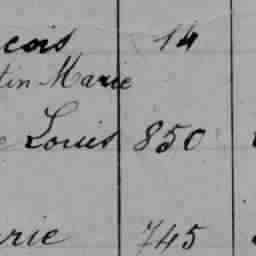 çois 14
tin Marie
Louis 850
rie 745